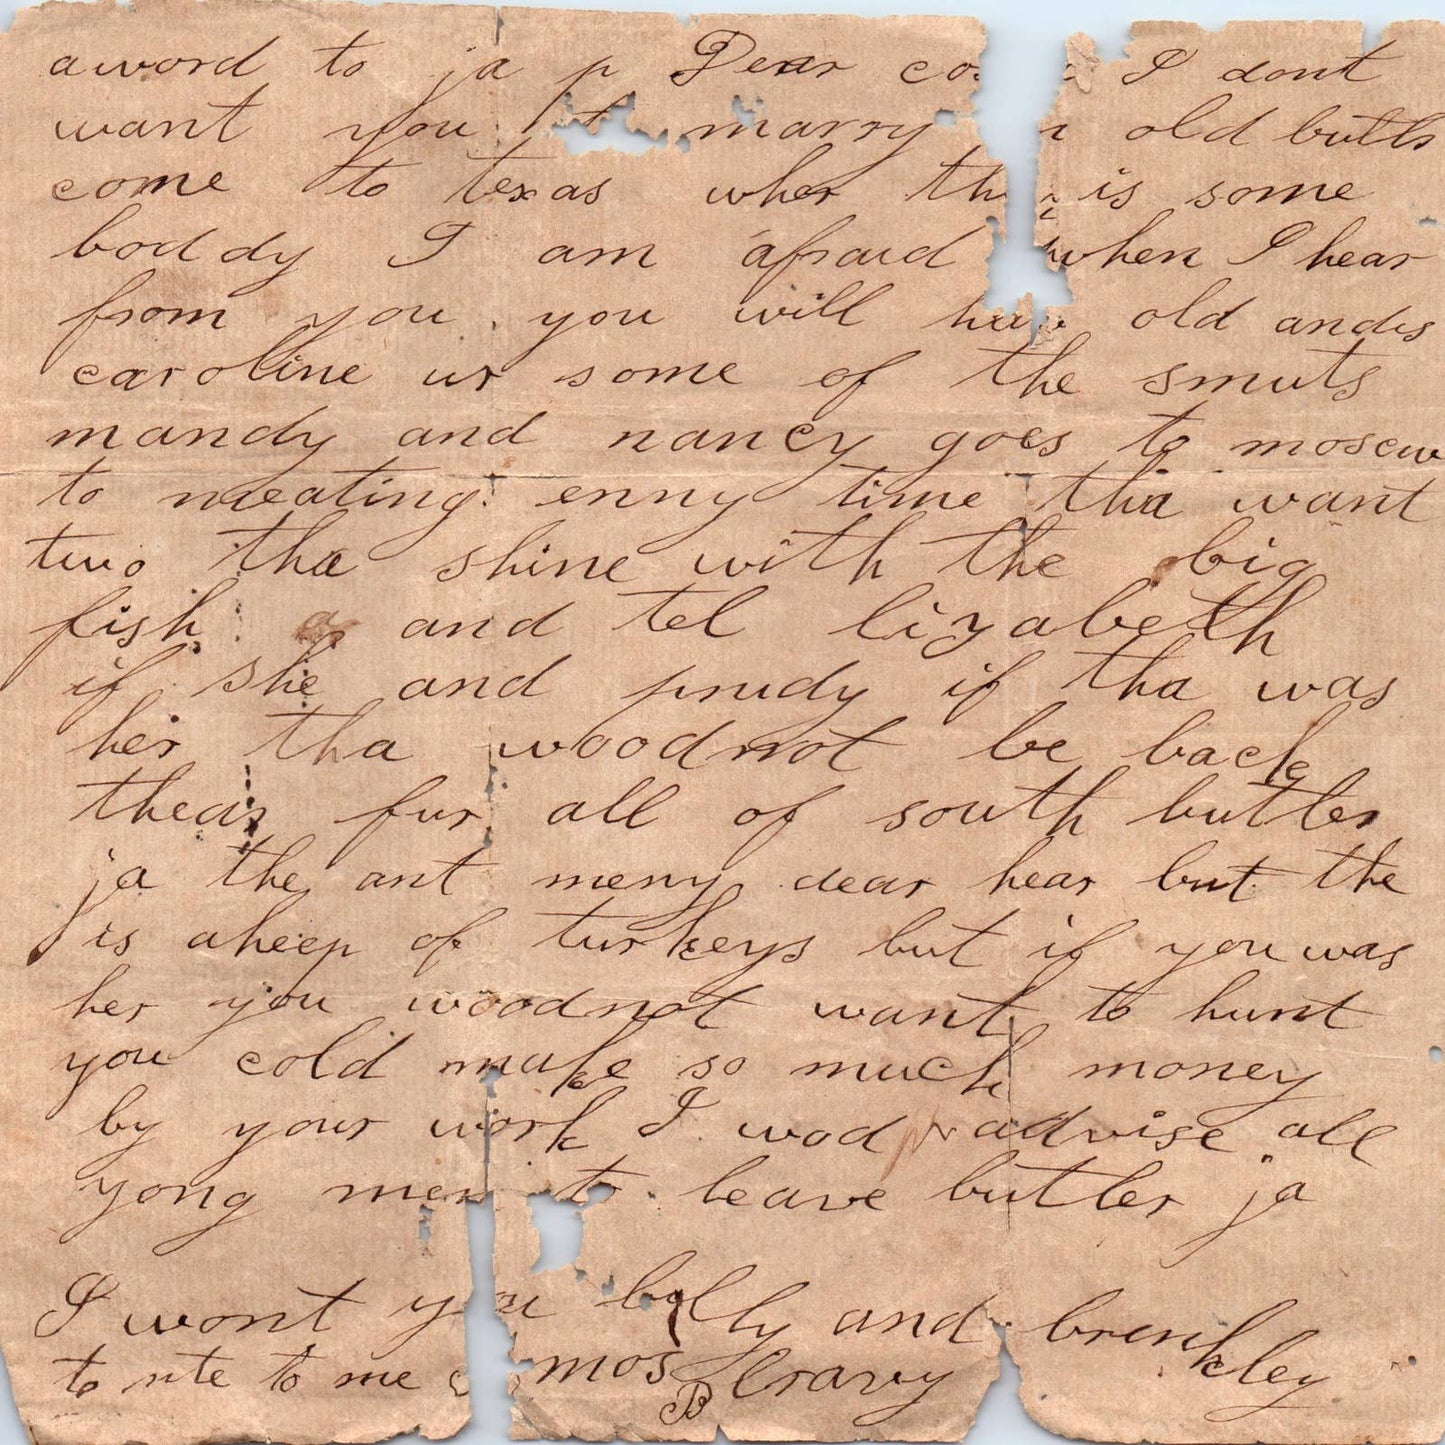 aword to ja p Dear I dont
want you marry old butts
come to texas wher is some
boddy I am afraid when I hear
from you you will hav old andis
caroline ur some of the smuts
mandy and nancy goes to moscow
to meating enny time tha want
two tha shine with the big
fish and tel lizabeth
if she and prudy if tha was
her tha woodnot be back
thear fur all of south butler
ja the ant meny dear hear but the
is aheep of turkeys but if you was
her you woodnot want to hunt
you cold make so much money
by your work I wod advise all
yong men to leave butler ja
I wont you billy and brenkley
to rite to me mos B Cravy